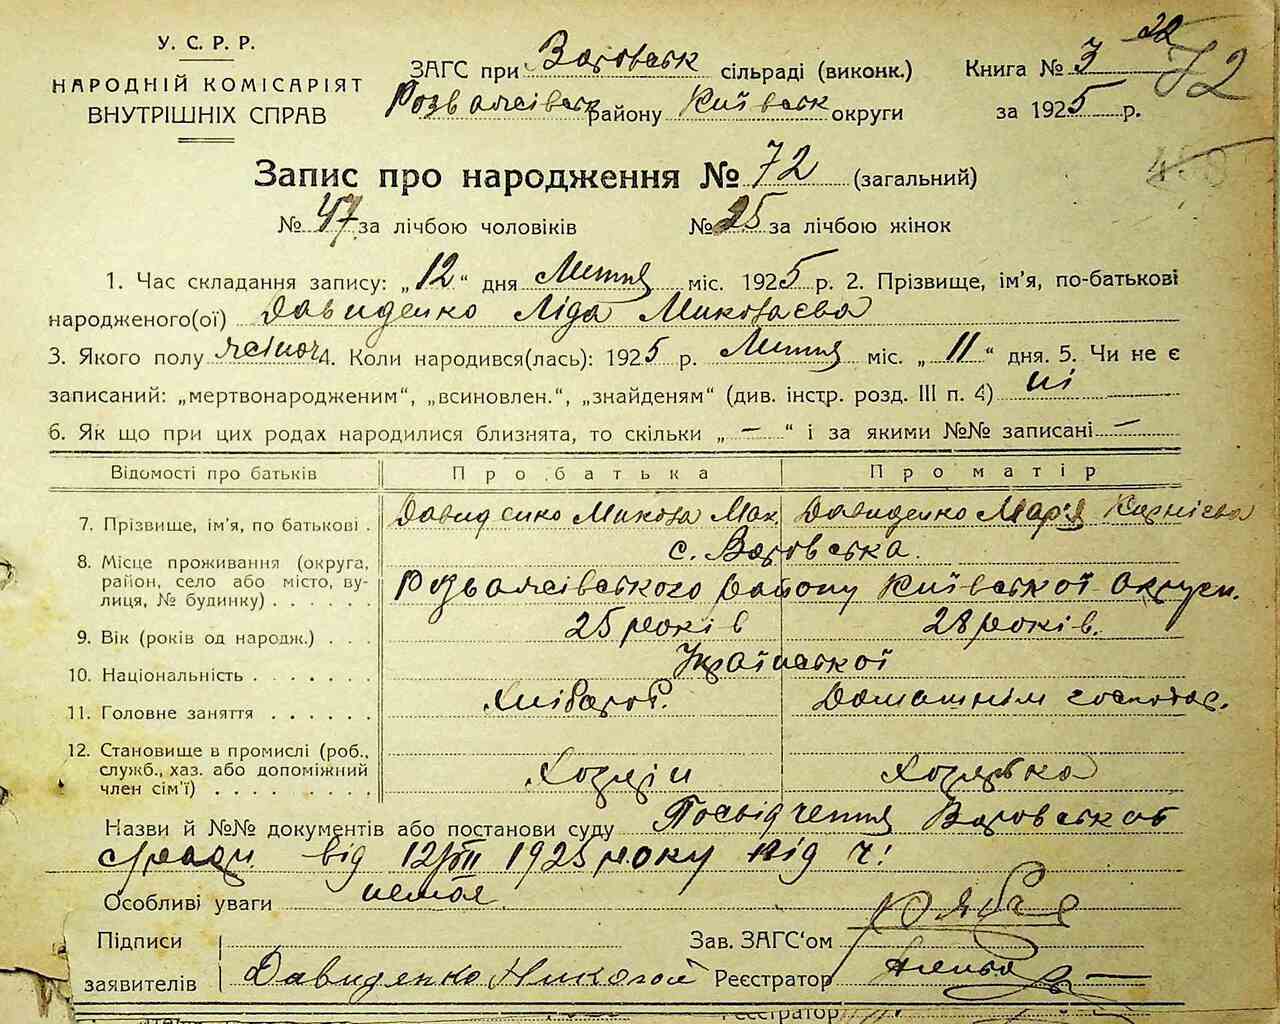 У. С. Р. Р.
НАРОДНІЙ КОМІСАРІЯТ
ВНУТРІШНІХ СПРАВ
ЗАГС при Варовськ сільраді (виконк.)
Розважівськ району Київськ округи
Книга № 3
за 1925 р.
72
Запис про народження № 72 (загальний)
№ 47 за лічбою чоловіків № 25 за лічбою жінок
1. Час складання запису: „12“ дня Липня міс. 1925 р. 2. Прізвище, ім'я, по-батькові
народженого(ої) Давиденко Ліда Миколаєва
3. Якого полу жіноч 4. Коли народився(лась): 1925 р. Липня міс. „11“ дня. 5. Чи не є
записаний: „мертвонародженим“, „всиновлен.“, „знайденям“ (див. інстр. розд. III п. 4) ні
6. Як що при цих родах народилися близнята, то скільки „ — “ і за якими №№ записані —
Відомості про батьків Про батька Про матір
7. Прізвище, ім'я, по батькові . Давиденко Микола Мак. Давиденко Мар'я
8. Місце проживання (округа, с. Варовська.
район, село або місто, ву-
лиця, № будинку) . . . . . . Розважівського району Київської округи.
9. Вік (років од народж.) . . . 25 років 28 років.
10. Національність . . . . . . . Української
11. Головне заняття . . . . . . Хлібороб. Домашнім господар.
12. Становище в промислі (роб.,
служб., хаз. або допоміжний Хозяін Хозяйка
член сім'ї) . . . . . . . . .
Назви й №№ документів або постанови суду Посвідчення Варовськоі
сілради від 12/VII 1925 року від ч!
Особливі уваги немає.
Підписи Зав. ЗАГС'ом
заявителів Давиденко Николай Реєстратор
Реєстратор